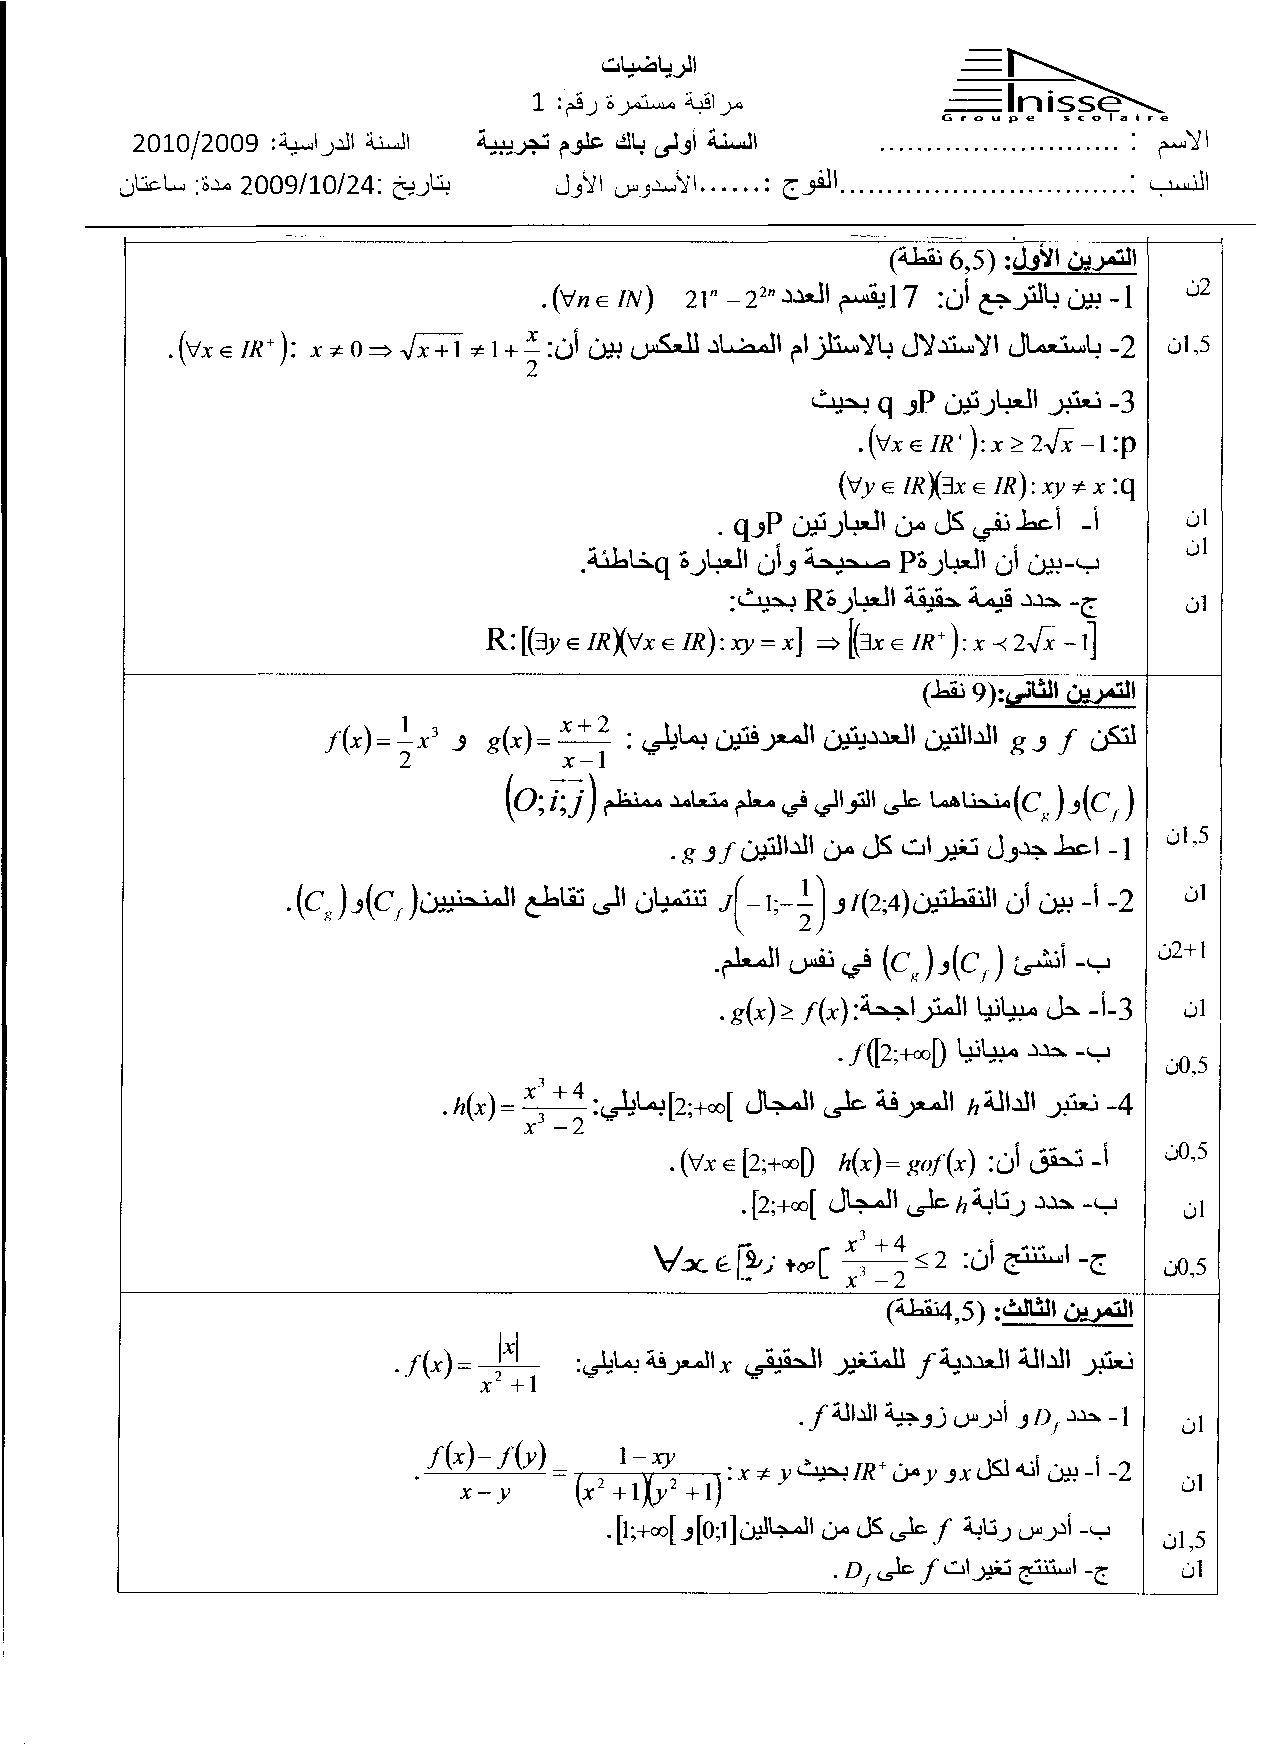 Inisse
Groupe scolaire
الرياضيات
مراقبة مستمرة رقم: 1
الاسم : .......................... السنة أولى باك علوم تجريبية السنة الدراسية: 2010/2009
النسب :...............................الفوج :......الأسدوس الأول بتاريخ :2009/10/24 مدة: ساعتان
التمرين الأول: (6,5 نقطة)
2ن 1- بين بالترجع أن: 17يقسم العدد 21ⁿ – 2²ⁿ (∀n ∈ IN).
1,5ن 2- باستعمال الاستدلال بالاستلزام المضاد للعكس بين أن: (∀x ∈ IR⁺): x ≠ 0 ⇒ √(x+1) ≠ 1 + x/2.
3- نعتبر العبارتين P و q بحيث
p: (∀x ∈ IR⁺): x ≥ 2√x – 1.
q: (∀y ∈ IR)(∃x ∈ IR): xy ≠ x
1ن أ- أعط نفي كل من العبارتين P و q .
1ن ب-بين أن العبارة P صحيحة وأن العبارة q خاطئة.
1ن ج- حدد قيمة حقيقة العبارة R بحيث:
R: [(∃y ∈ IR)(∀x ∈ IR): xy = x] ⇒ [(∃x ∈ IR⁺): x ≺ 2√x – 1]
التمرين الثاني:(9 نقط)
لتكن f و g الدالتين العدديتين المعرفتين بمايلي : g(x) = (x+2)/(x–1) و f(x) = 1/2 x³
(C_f) و (C_g) منحناهما على التوالي في معلم متعامد ممنظم (O; i; j)
1,5ن 1- اعط جدول تغيرات كل من الدالتين f و g .
1ن 2- أ- بين أن النقطتين I(2;4) و J(–1; –1/2) تنتميان الى تقاطع المنحنيين (C_f) و (C_g).
2+1ن ب- أنشئ (C_f) و (C_g) في نفس المعلم.
1ن 3-أ- حل مبيانيا المتراجحة: g(x) ≥ f(x) .
0,5ن ب- حدد مبيانيا f([2;+∞[) .
4- نعتبر الدالة h المعرفة على المجال [2;+∞[ بمايلي: h(x) = (x³+4)/(x³–2) .
0,5ن أ- تحقق أن: h(x) = gof(x) (∀x ∈ [2;+∞[) .
1ن ب- حدد رتابة h على المجال [2;+∞[ .
0,5ن ج- استنتج أن: (x³+4)/(x³–2) ≤ 2 ∀x ∈ [2; +∞[
التمرين الثالث: (4,5نقطة)
نعتبر الدالة العددية f للمتغير الحقيقي x المعرفة بمايلي: f(x) = |x|/(x²+1) .
1ن 1- حدد D_f و أدرس زوجية الدالة f .
1ن 2- أ- بين أنه لكل x و y من IR⁺ بحيث x ≠ y : (f(x) – f(y))/(x – y) = (1 – xy)/((x²+1)(y²+1)) .
1,5ن ب- أدرس رتابة f على كل من المجالين [0;1] و [1;+∞[ .
1ن ج- استنتج تغيرات f على D_f .